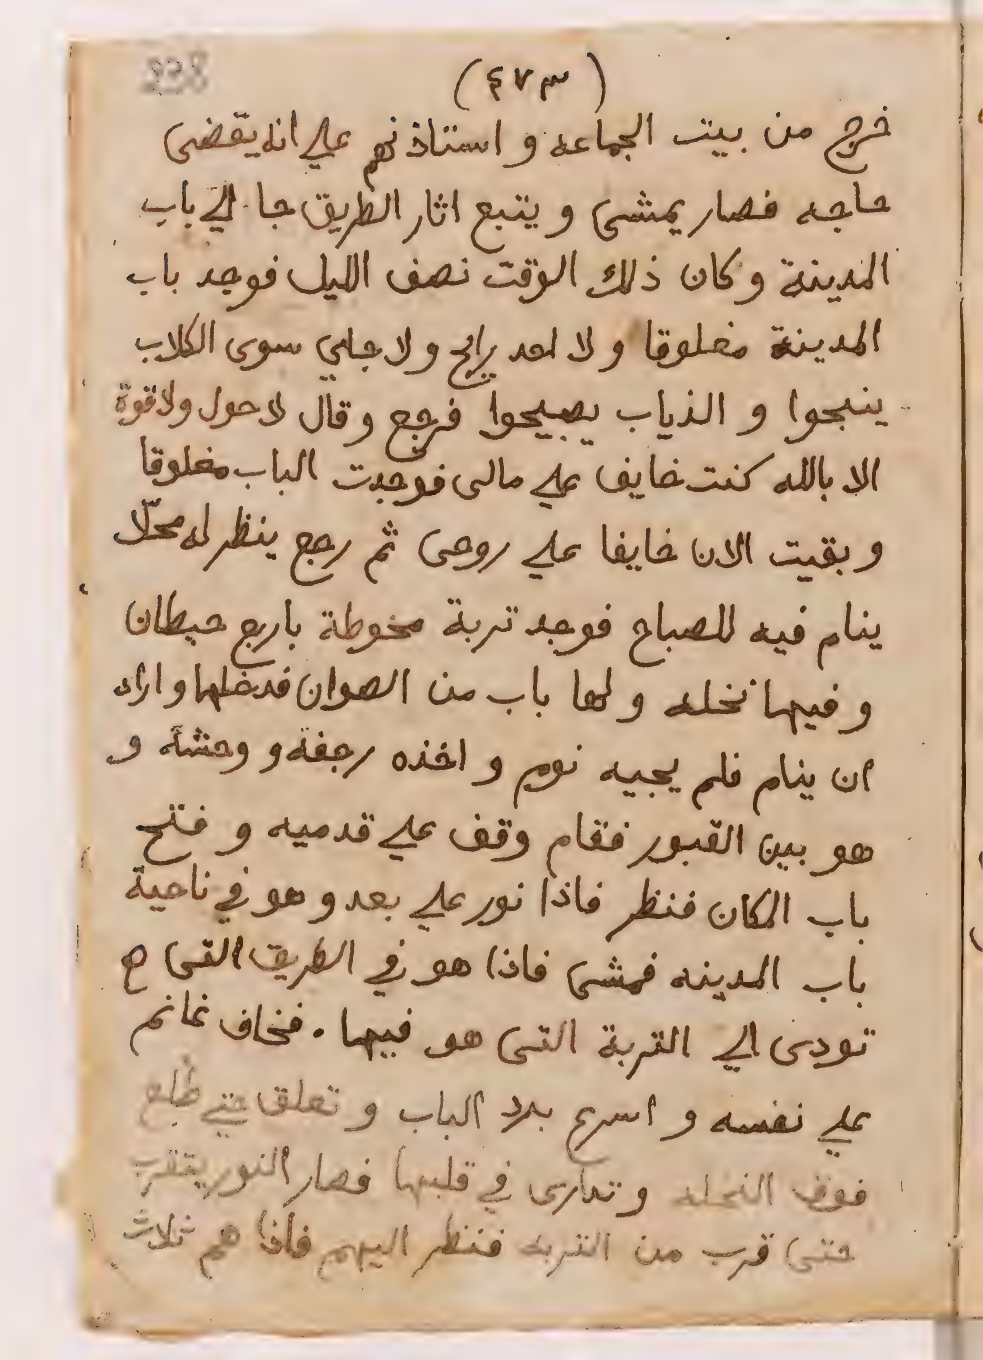 238
(٤٧٣)
خرج من بيت الجماعه و استاذنهم علي انه يقضى
حاجه فصار يمشى و يتبع اثار الطريق جا الي باب
المدينة و كان ذلك الوقت نصف الليل فوجد باب
المدينة مغلوقا و لا احد رايح و لا جاي سوى الكلاب
ينبحوا و الذياب يصيحوا فرجع و قال لا حول ولا قوة
الا بالله كنت خايف علي مالى فوجدت الباب مغلوقا
و بقيت الان خايفا علي روحى ثم رجع ينظر له محلّا
ينام فيه للصباح فوجد تربة محوطة باربع حيطان
و فيها نخله و لها باب من الصوان فدخلها و اراد
ان ينام فلم يجيه نوم و اخذه رجفة و وحشة و
هو بين القبور فقام وقف علي قدميه و فتح
باب المكان فنظر فاذا نور علي بعد و هو في ناحية
باب المدينه فمشى فاذا هو في الطريق التى
تودى الي التربة التى هو فيها . فخاف غانم
علي نفسه و اسرع برد الباب و تعلق حتي طلع
فوق النخله و تدارى في قلبها فصار النور يتقرب
حتى قرب من التربه فنظر اليهم فاذا هم ثلاث